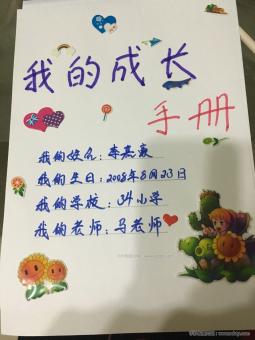 我的成长
手册
我的姓名：李嘉豪
我的生日：2008年8月23日
我的学校：34小学
我的老师：马老师